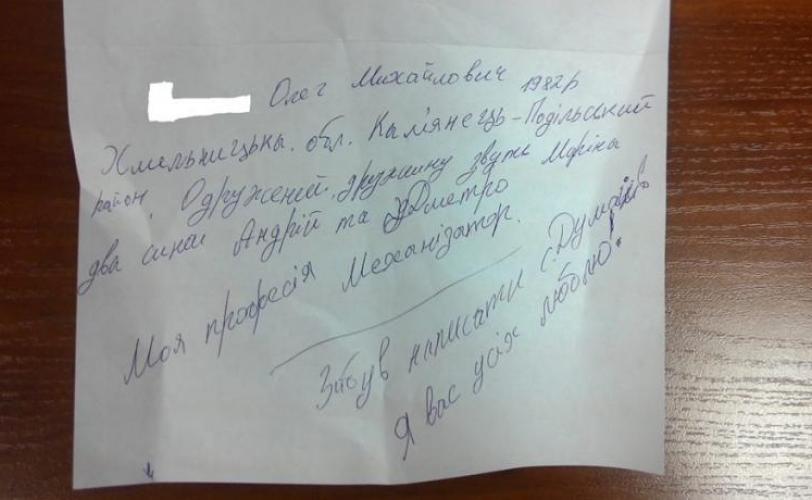 Олег Михайлович 1982р
Хмельницька. обл. Кам'янець-Подільський
район. Одружений, дружину звуть Маріна
два сини Андрій та Дмитро
Моя професія Механізатор.
Забув написати с.
Я вас усіх люблю!